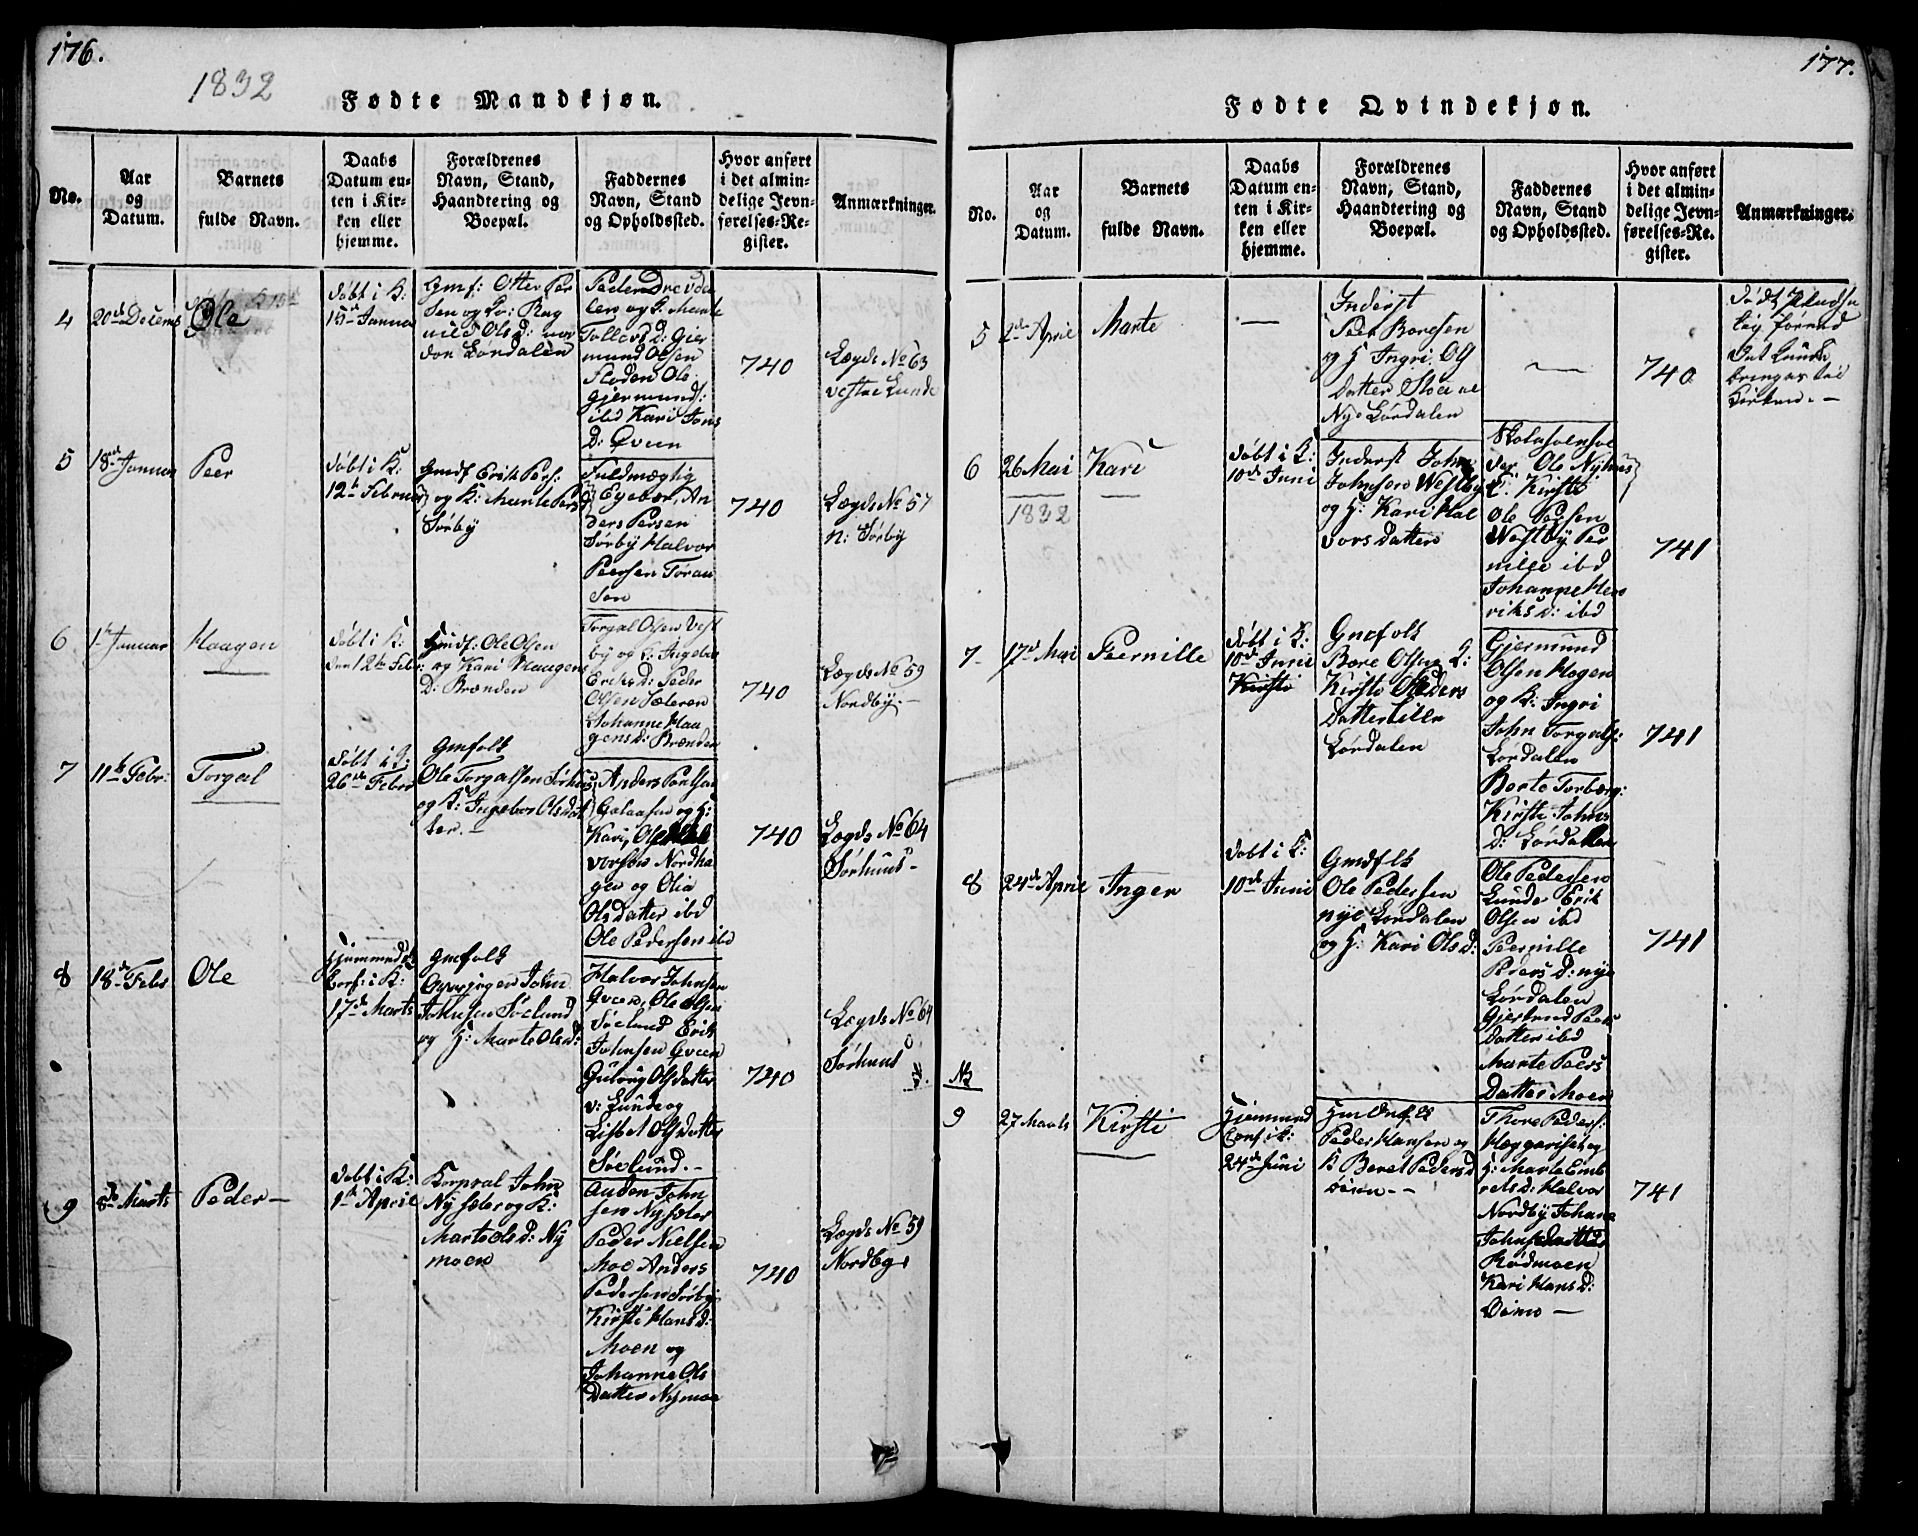 176.
1832
Fødte Mandkjøn.
No.
Aar
og
Datum.
Barnets
fulde Navn.
Daabs
Datum en-
ten i Kir-
ken eller
hjemme.
Forældrenes
Navn, Stand,
Haandtering og
Boepæl.
Faddernes
Navn, Stand
og Opholdssted.
Hvor anført
i det almin-
delige Jevn-
førelses-Re-
gister.
Anmærkninger.
4
20de Decemb
Ole
døbt i K:
15de Januar
Gmf: Otter Per
sen og Ko: Rag
nild Olsd: nor
dre Lørdalen
og K: Marte
Tollevsd: Gjer
mund Olsen
Floden Ole
Gjermunds:
ibd Kari Jons
D: Qveen
740
Lægds No 63
vestre Lunde
5
18de Januar
Peer
døbt i K:
12te Februar
Gmdf Erik Pers:
og K: Marte Persd
Sørby
Fuldmægtig
Egeboe, An
ders Persen
Sørby Halvor
Peersen Toran
Søn
740
Lægds No 57
n: Sørby
6
1te Januar
Haagen
døbt i K:
den 12te Febr:
Gmdf: Ole Olsen
og Kari Haagens
D: Brænden
Torgal Olsen Vest
by og K: Ingebor
Eriksd: Peder
Olsen Sæteren
Johanne Haa
gensd: Brænden
740
Lægds No 59
Nordby.
7
11te Febr:
Torgal
døbt i K:
26de Febr
Gmfolk
Ole Torgalsen Sørhuus
og K: Ingebor Olsdat
ter. —
Anders Poulsen
Galaasen og H:
Kari, Ole Hal
vorsen Nordha
gen og Olia
Olsdatter ibd
Ole Pedersen ibd
740
Lægds No 64
Sørhuus -
8
18de Febr
Ole
Hjemmed:
Conf: i K:
17de Marts
Gmfolk
John
Johnsen Søelund
og H: Marte Olsd:
Halvor Johnsen
Qveen, Ole Olsen
Søelund Erik
Johnsen Qveen
Gulaug Olsdatter
v: Lunde og
Lisbet Olsdatter
Søelund. -
740
Lægds No 64
Sørhuus
9
8de Marts
Peder —
døbt i K:
1te April
Korpral John
Nysæter og K:
Marte Olsd: Ny
moen
Auden John
sen Nysæter
Peder Nielsen
Moe Anders
Pedersen Sørby
Kirsti Hansd:
Moen og
Johanne Ols
datter Nymoe
740
Lægds No 59
Nordby
177.
Fødte Qvindekjøn.
No.
Aar
og
Datum.
Barnets
fulde Navn.
Daabs
Datum en-
ten i Kir-
ken eller
hjemme.
Forældrenes
Navn, Stand,
Haandtering og
Boepæl.
Faddernes
Navn, Stand
og Opholdssted.
Hvor anført
i det almin-
delige Jevn-
førelses-Re-
gister.
Anmærkninger.
5
April
Marte
—
Inderst
Peer Boresen
og H: Ingri Ols
datter Store
Nye Lørdalen
—
740
det kunde
bringes til
Kirken. -
6
26 Mai
1832
Kari
døbt i K:
10de Juni
Inderst John
Johnsen Westby
og H: Kari Hal
vorsdatter
Ole Nyhus
K: Kirsti
Ole Persen
Westby Per
nille ibd
Johanne Hen
riksd: ibd
741
7
17de Mai
Peernille
døbt i K:
10de Juni
Kirsti
Gmfolk
Bore Olsen L:
Kirsti Peders
datter Lille
Lørdalen
Gjermund
Olsen Hogen
og K: Ingri
John Torgals:
Lørdalen
Berte Torberg:
Kirsti Johns
D: Lørdalen
741
8
24de April
Inger
døbt i K:
10de Juni
Gmdfolk
Ole Pedersen
nye Lørdalen
og H: Kari Olsd:
Ole Pedersen
Lunde Erik
Olsen ibd
Peernille
Pedersd: nye
Lørdalen
Gjertrud Peers
datter ibd
Marte Peers
datter Moen
741
NB
9
27 Marts
Kirsti
Hjemmed
Conf i K:
24de Juni
Peder Hansen og
K Beret Pedersd
Thore Peders:
Hæggeriset og
H: Marte Emb
retsd: Halvor
Nordby Johane
Johnsdatter
Rødmoen
Kari Hansd:
741